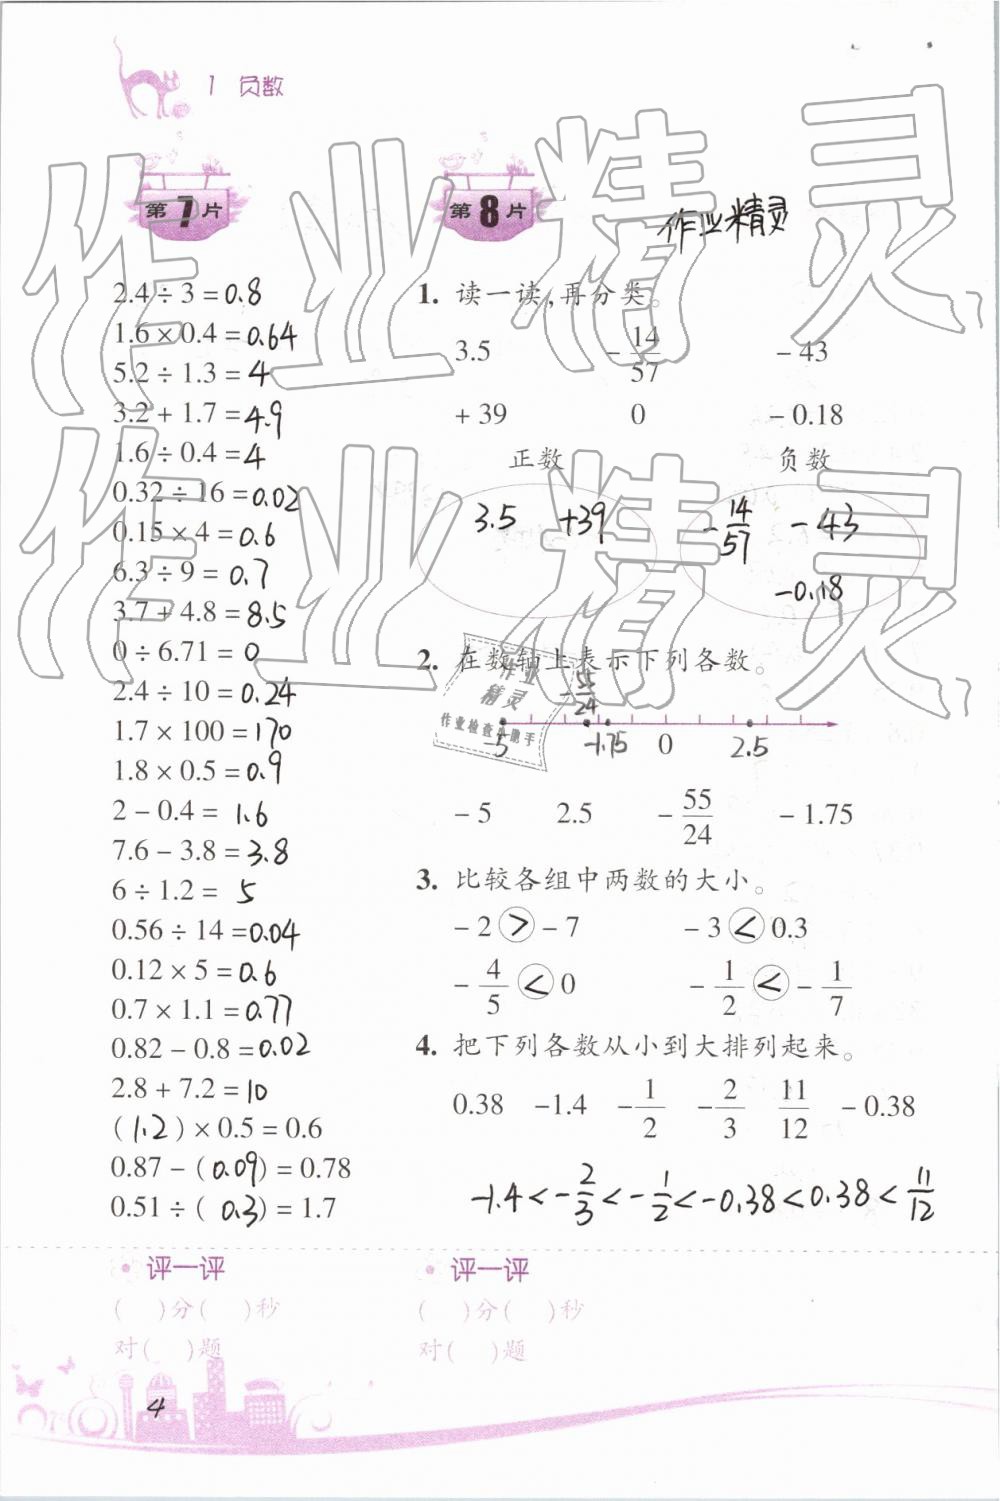 1 负数
第7片
2.4 ÷ 3 = 0.8
1.6 × 0.4 = 0.64
5.2 ÷ 1.3 = 4
3.2 + 1.7 = 4.9
1.6 ÷ 0.4 = 4
0.32 ÷ 16 = 0.02
0.15 × 4 = 0.6
6.3 ÷ 9 = 0.7
3.7 + 4.8 = 8.5
0 ÷ 6.71 = 0
2.4 ÷ 10 = 0.24
1.7 × 100 = 170
1.8 × 0.5 = 0.9
2 - 0.4 = 1.6
7.6 - 3.8 = 3.8
6 ÷ 1.2 = 5
0.56 ÷ 14 = 0.04
0.12 × 5 = 0.6
0.7 × 1.1 = 0.77
0.82 - 0.8 = 0.02
2.8 + 7.2 = 10
(1.2) × 0.5 = 0.6
0.87 - (0.09) = 0.78
0.51 ÷ (0.3) = 1.7
评一评
( )分( )秒
对( )题
第8片
作业精灵
1. 读一读,再分类。
3.5 -14/57 -43
+39 0 -0.18
正数 负数
3.5 +39 -14/57 -43
-0.18
2. 在数轴上表示下列各数。
-55/24
-5 -1.75 0 2.5
-5 2.5 -55/24 -1.75
3. 比较各组中两数的大小。
-2 > -7 -3 < 0.3
-4/5 < 0 -1/2 < -1/7
4. 把下列各数从小到大排列起来。
0.38 -1.4 -1/2 -2/3 11/12 -0.38
-1.4 < -2/3 < -1/2 < -0.38 < 0.38 < 11/12
评一评
( )分( )秒
对( )题
4
作业精灵
作业精灵
作业
精灵
作业检查小助手